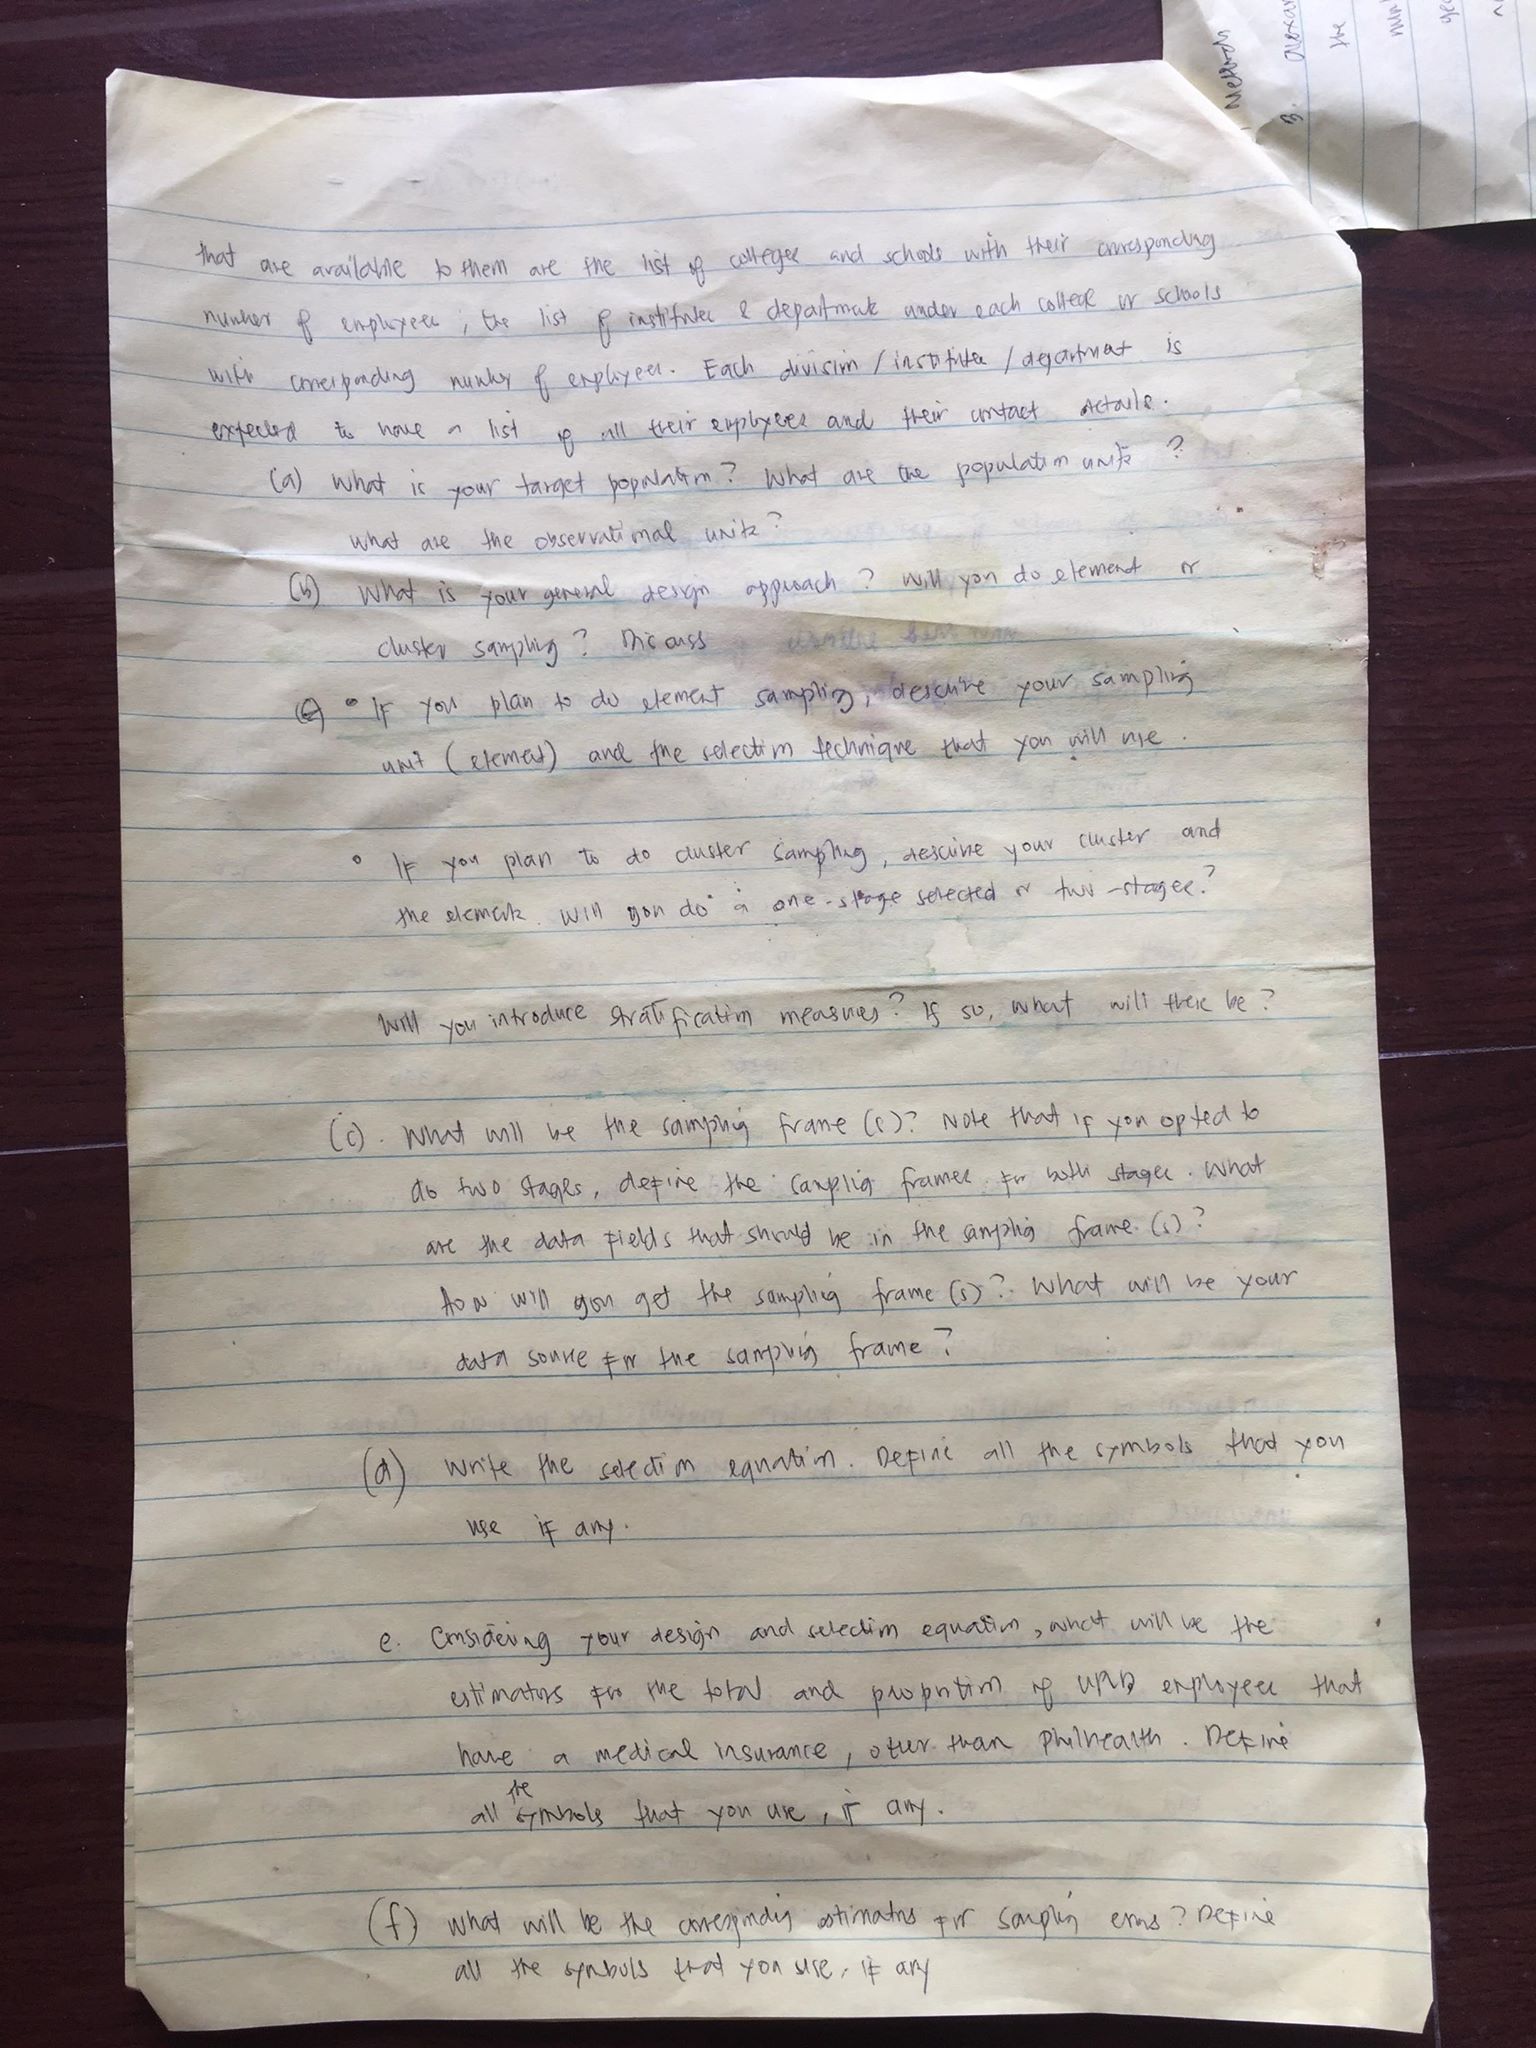 that are available to them are the list of colleges and schools with their corresponding
number of employees, the list of institutes & departments under each college or schools
with corresponding number of employees. Each division / institutes / department is
expected to have a list of all their employees and their contact details.
(a) What is your target population? What are the population units?
what are the observational units?
(b) What is your general design approach? Will you do element or
cluster sampling? Discuss
• If you plan to do element sampling, describe your sampling
unit (element) and the selection technique that you will use.
• If you plan to do cluster sampling, describe your cluster and
the elements. Will you do a one-stage selected or two-stages?
Will you introduce stratification measures? If so, what will these be?
(c). What will be the sampling frame (s)? Note that if you opted to
do two stages, define the sampling frames for both stages. What
are the data fields that should be in the sampling frame (s)?
How will you get the sampling frame (s)? What will be your
data source for the sampling frame?
(d) Write the selection equation. Define all the symbols that you
use if any.
e. Considering your design and selection equation, what will be the
estimators for the total and proportion of UPD employees that
have a medical insurance, other than Philhealth. Define
all the symbols that you use, if any.
(f) What will be the corresponding estimators for sampling errors? Define
all the symbols that you use, if any
Methods
3.
the